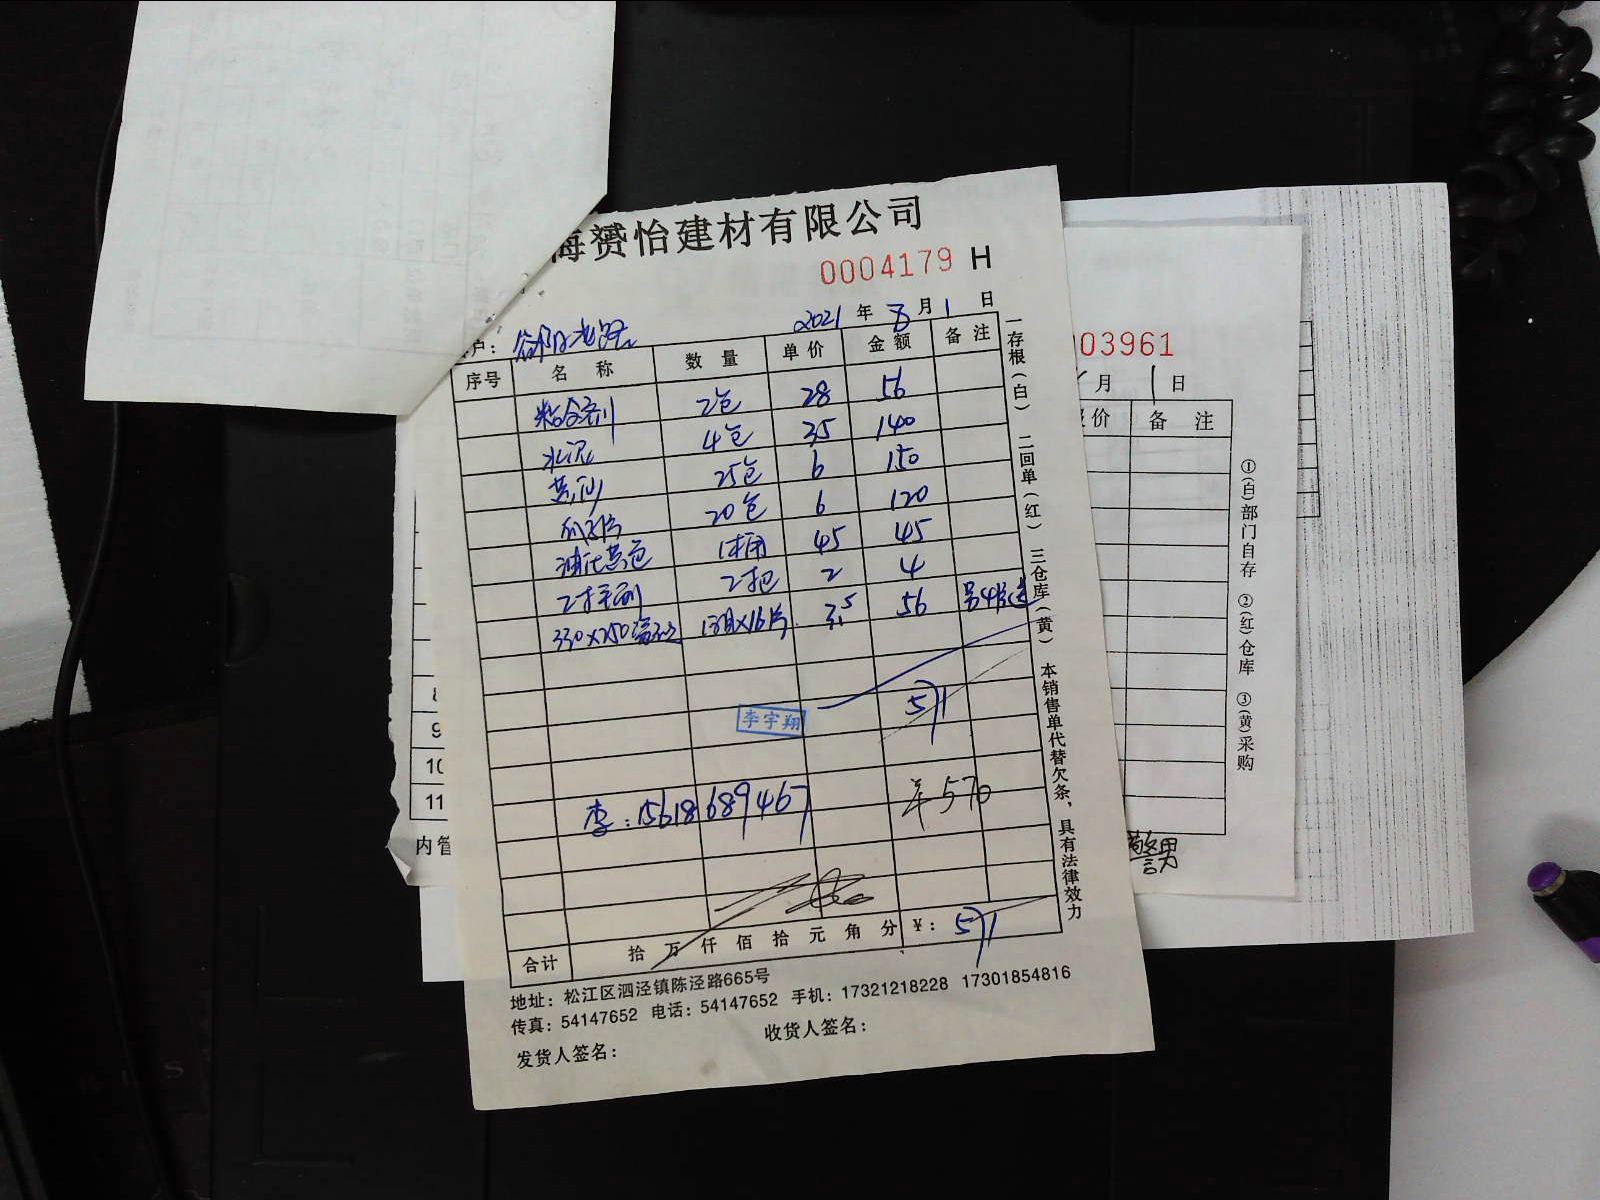 海赟怡建材有限公司
0004179 H
2021 年 8 月 1 日
户：
序号 名 称 数 量 单 价 金 额 备 注
粘合剂 2包 28 56
水泥 4包 35 140
黄沙 25包 6 150
20包 6 120
油性黄色 1桶 45 45
2寸平刷 2把 2 4
330×250 1箱×16片 3.5 56
李宇翔
571
李：15618689467
￥570
合计 拾 万 仟 佰 拾 元 角 分 ￥：571
地址：松江区泗泾镇陈泾路665号
传真：54147652 电话：54147652 手机：17321218228 17301854816
发货人签名： 收货人签名：
一存根（白） 二回单（红） 三仓库（黄） 本销售单代替欠条，具有法律效力
03961
月 1 日
价 备 注
①（白）部门自存 ②（红）仓库 ③（黄）采购
8
9
10
11
内管